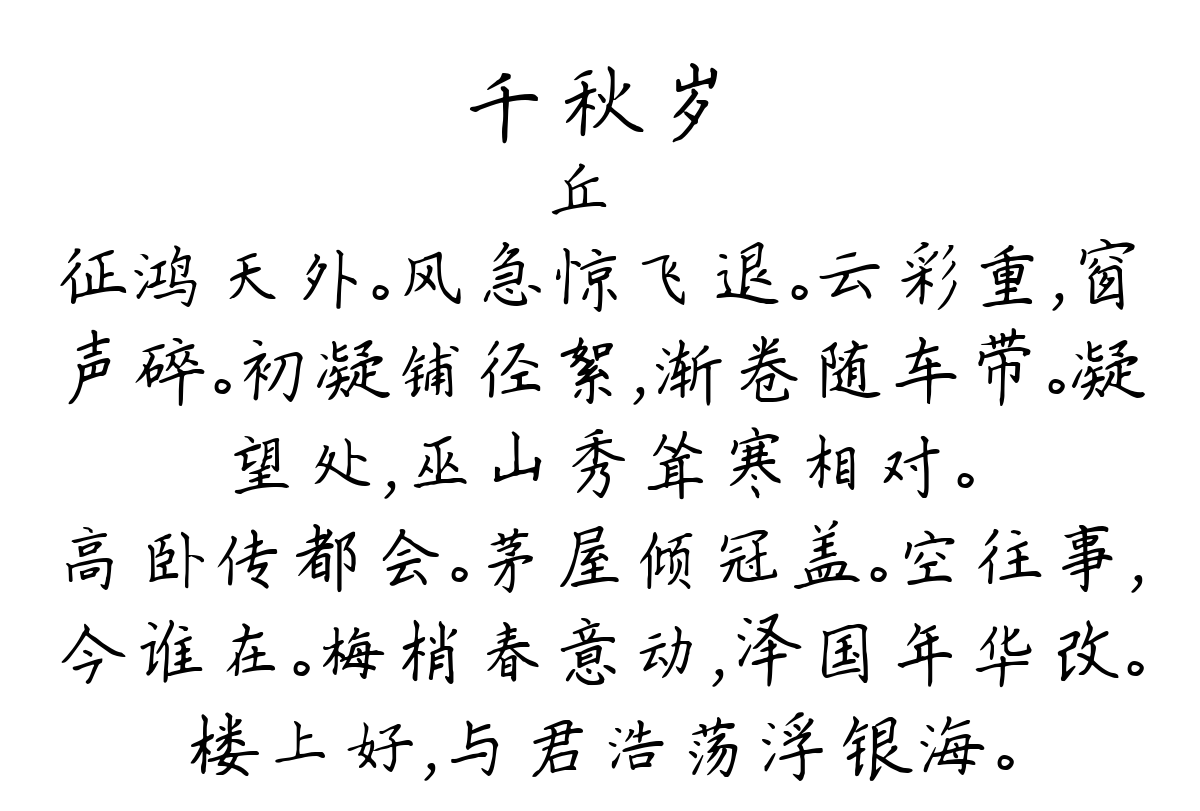 千秋岁
丘
征鸿天外。风急惊飞退。云彩重,窗
声碎。初凝铺径絮,渐卷随车带。凝
望处,巫山秀耸寒相对。
高卧传都会。茅屋倾冠盖。空往事,
今谁在。梅梢春意动,泽国年华改。
楼上好,与君浩荡浮银海。